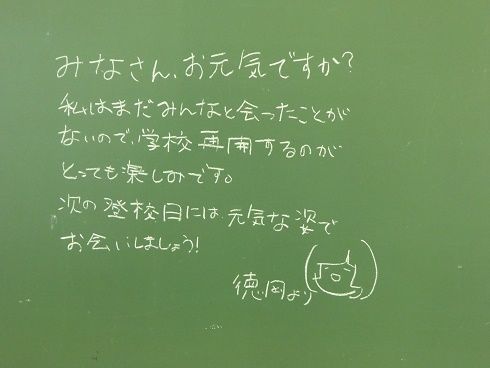 みなさん、お元気ですか?
私はまだみんなと会ったことが
ないので、学校再開するのが
とっても楽しみです。
次の登校日には、元気な姿で
お会いしましょう!
徳岡より